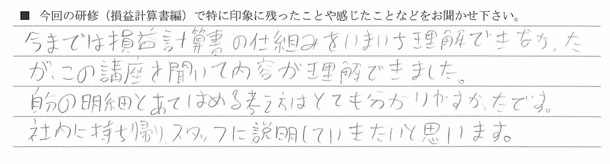 ■ 今回の研修（損益計算書編）で特に印象に残ったことや感じたことなどをお聞かせ下さい。
今までは損益計算書の仕組みをいまいち理解できなかった
が、この講座を聞いて内容が理解できました。
自分の明細とあてはめる考え方はとても分かりやすかったです。
社内に持ち帰り、スタッフに説明していきたいと思います。